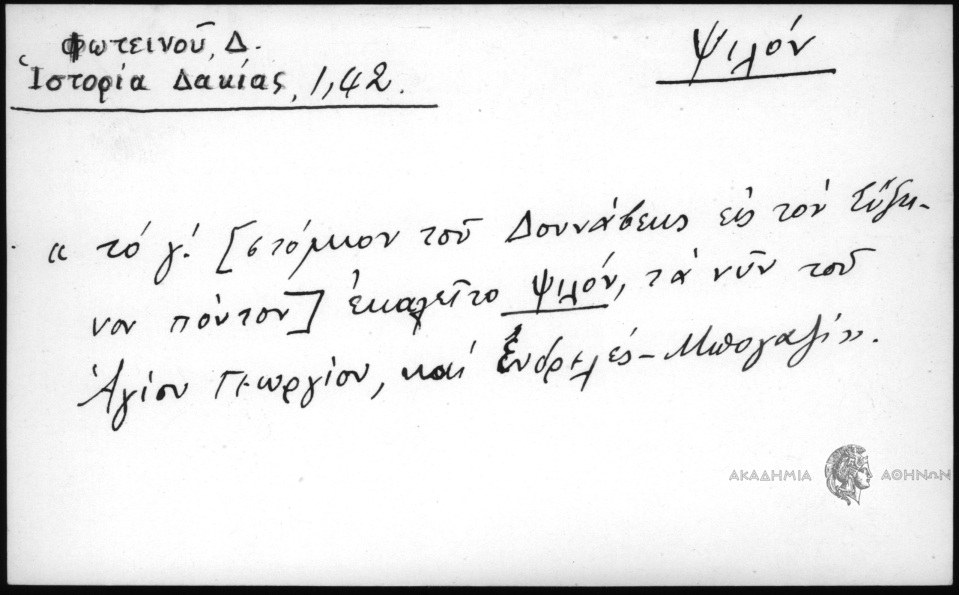 Φωτεινοῦ, Δ.
Ἱστορία Δακίας, 1,42.
Ψιλόν
« τό γ΄. [στόμιον τοῦ Δουνάβεως εἰς τόν Εὔξει-
νον πόντον] ἐκαλεῖτο Ψιλόν, τά νῦν τοῦ
Ἁγίου Γεωργίου, καί Ἐνδρελές-Μπογαζί».
ΑΚΑΔΗΜΙΑ ΑΘΗΝΩΝ